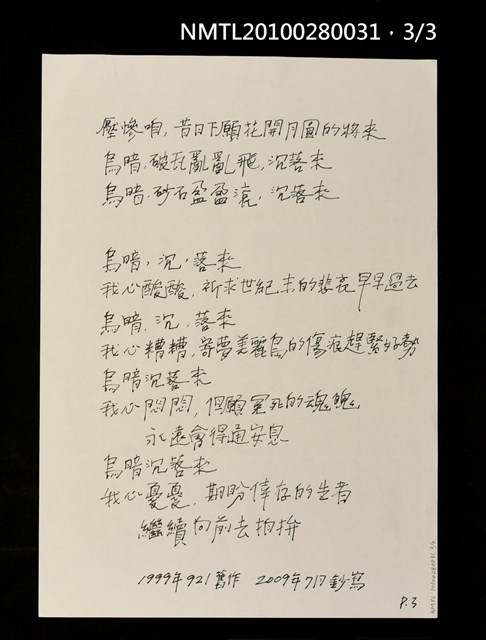 NMTL20100280031，3/3
壓慘咱，昔日下願花開月圓的將來
烏暗，破瓦亂亂飛，沉落來
烏暗，砂石盈盈滾，沉落來
烏暗，沉，落來
我心酸酸，祈求世紀末的悲哀早早過去
烏暗，沉，落來
我心糟糟，寄夢美麗島的傷痕趕緊好勢
烏暗沉落來
我心悶悶，但願冤死的魂魄
永遠會得通安息
烏暗沉落來
我心憂憂，期盼倖存的生者
繼續向前去拍拚
1999年921舊作 2009年7月鈔寫
P.3
NMTL 20100280031 3/3